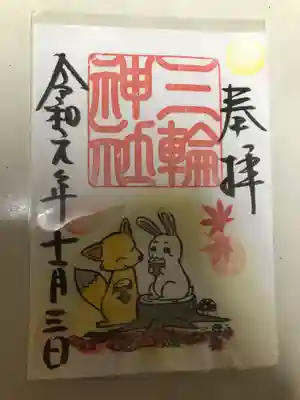 奉拝
三輪
神社
令和元年十一月三日